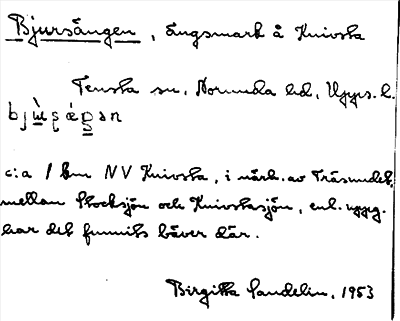 Bjursängen, ängsmark å Knivsta
Tensta sn, Norunda hd, Upps. l.
c:a 1 km NV Knivsta, i närh. av Träsundet,
mellan Stocksjön och Knivstasjön, enl. uppg.
har det funnits bäver där.
Birgitta Sandelin, 1953